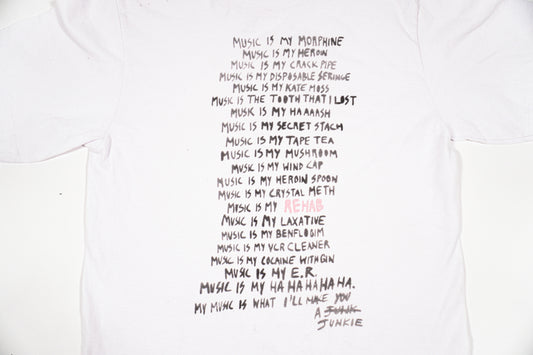 MUSIC IS MY MORPHINE
MUSIC IS MY HEROIN
MUSIC IS MY CRACK PIPE
MUSIC IS MY DISPOSABLE SERINGE
MUSIC IS MY KATE MOSS
MUSIC IS THE TOOTH THAT I LOST
MUSIC IS MY HAAAASH
MUSIC IS MY SECRET STACH
MUSIC IS MY TAPE TEA
MUSIC IS MY MUSHROOM
MUSIC IS MY WIND CAP
MUSIC IS MY HEROIN SPOON
MUSIC IS MY CRYSTAL METH
MUSIC IS MY REHAB
MUSIC IS MY LAXATIVE
MUSIC IS MY BENFLOGIM
MUSIC IS MY VCR CLEANER
MUSIC IS MY COCAINE WITH GIN
MUSIC IS MY E.R.
MUSIC IS MY HA HA HA HA HA.
MY MUSIC IS WHAT I'LL MAKE YOU
A JUNK
JUNKIE